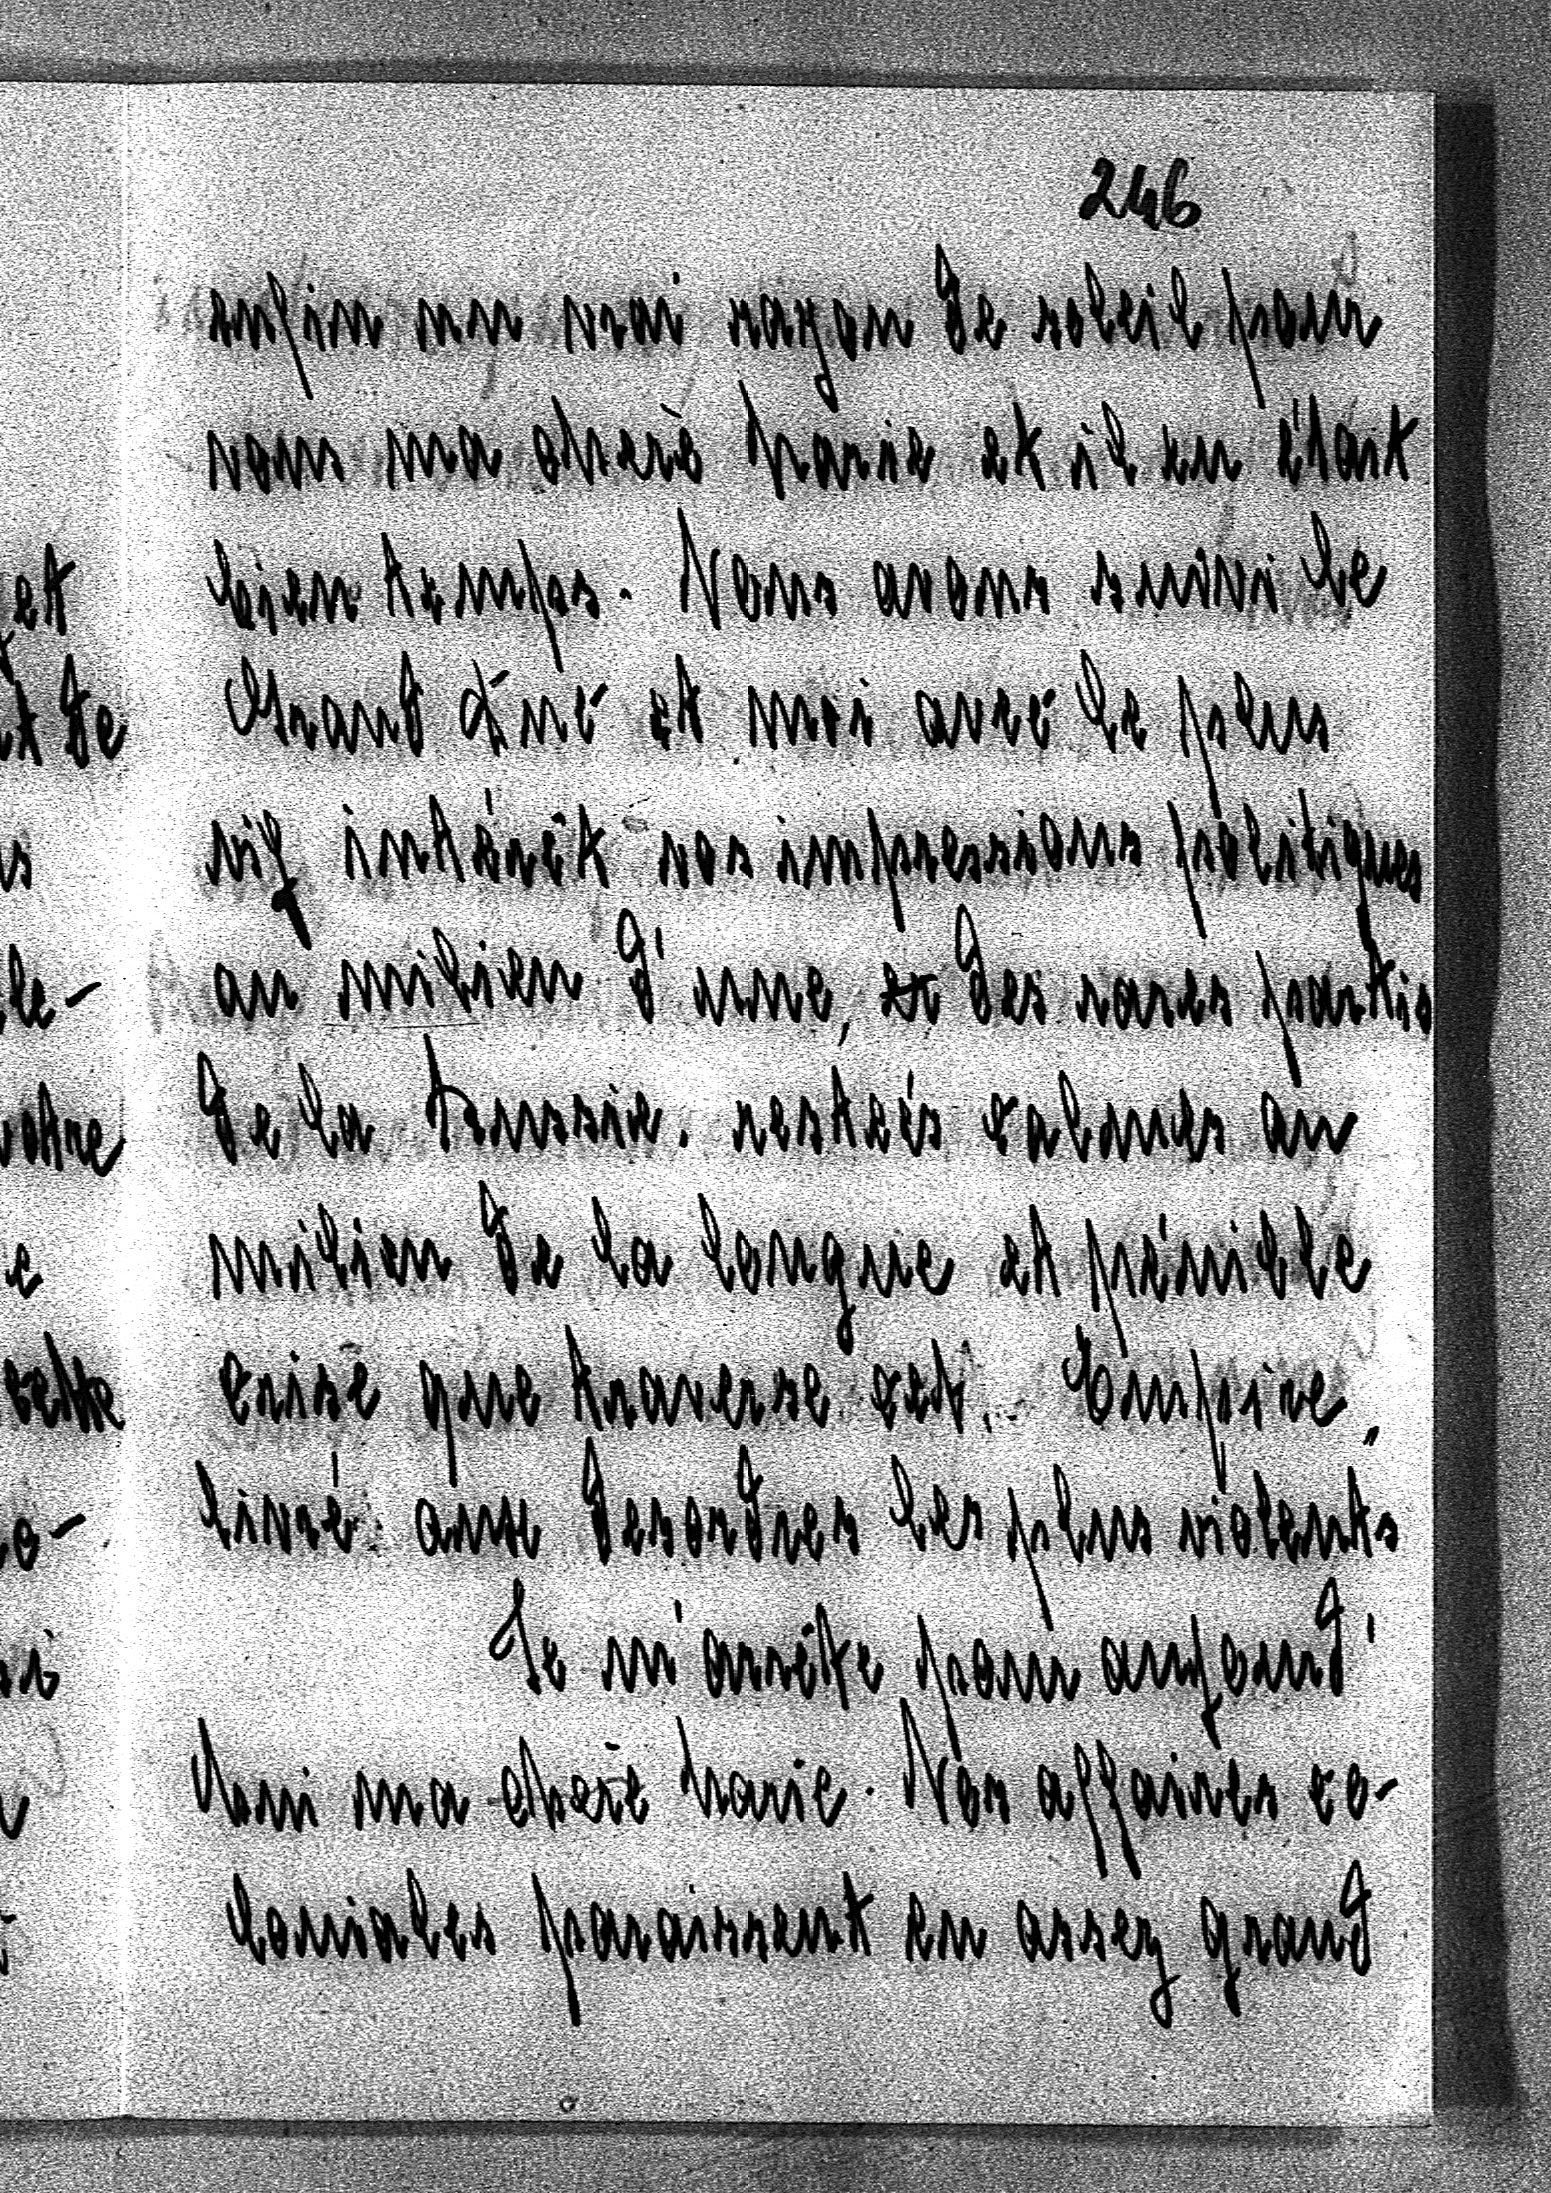 246
enfin un vrai rayon de soleil pour
vous ma chère Marie et il en était
bien temps. Nous avons suivi le
Grand Duc et moi avec le plus
vif intérêt vos impressions politiques
au milieu d'une, des rares partis
de la Russie. restées calmes au
milieu de la longue et pénible
crise que traverse cet. Empire,
livré aux desordres les plus violents
Je m'arrête pour aujourd'
hui ma chère Marie. Nos affaires co-
loniales paraissent en assez grand
et
t de
s
le-
votre
e
cette
co-